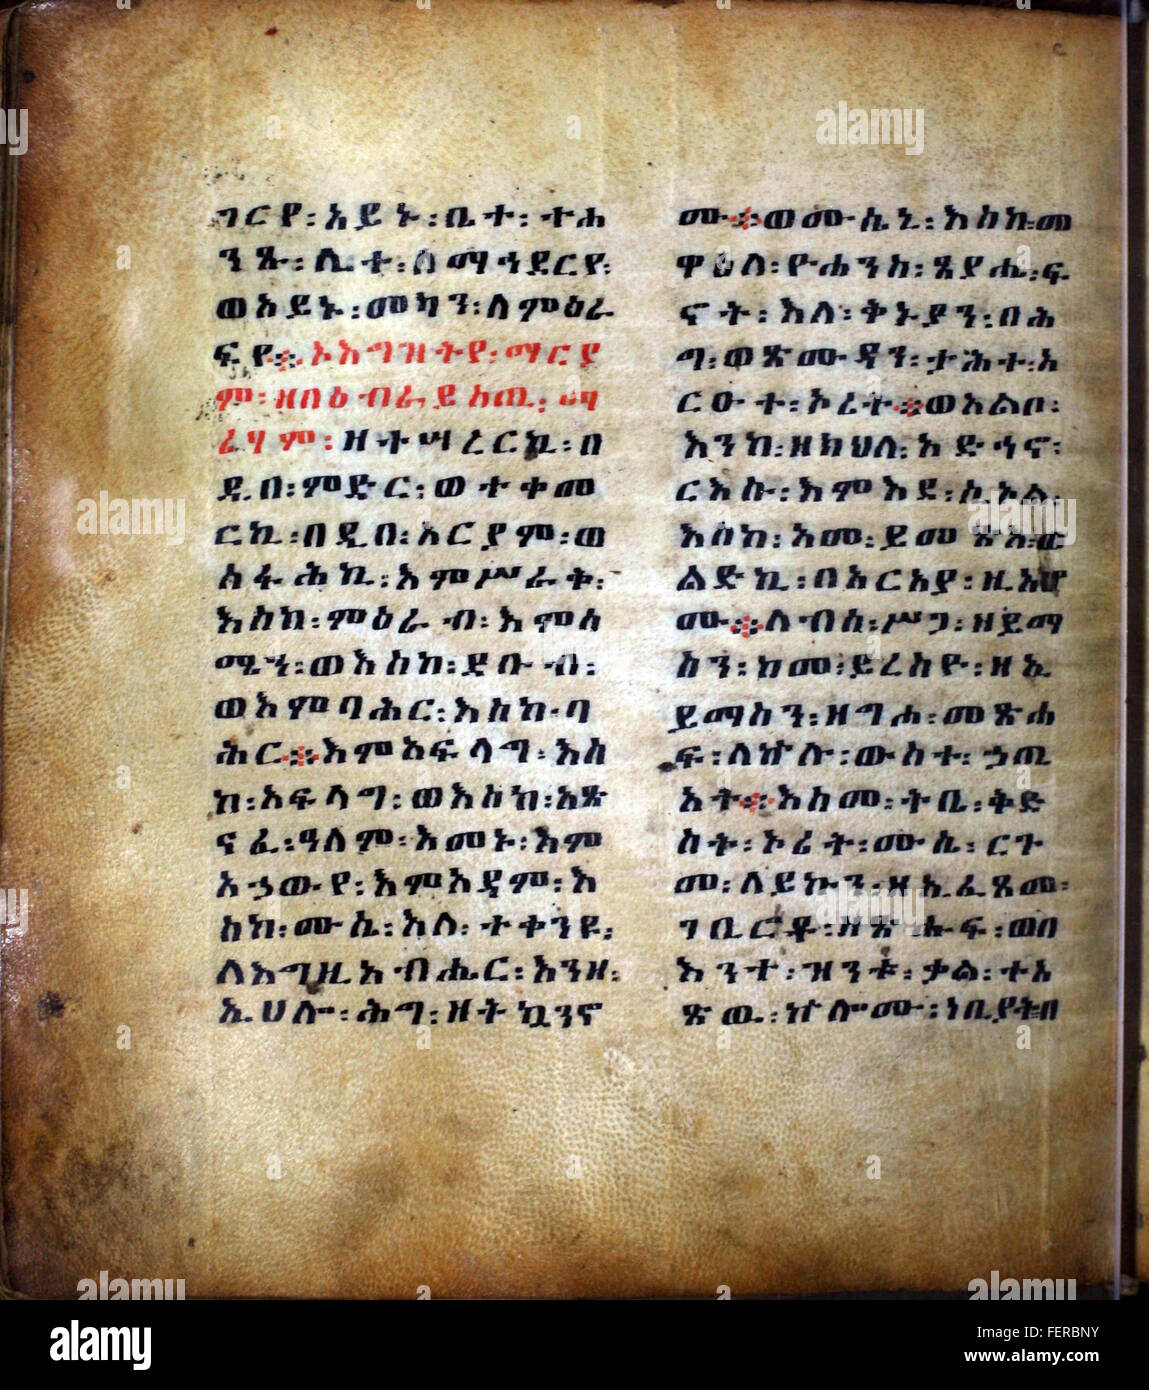 ገርየ፡አይኑ፡ቤተ፡ተሐ
ንጹ፡ሊተ፡ለማኅደርየ፡
ወአይኑ፡መካን፡ለምዕራ
ፍየ፨ኦእግዝትየ፡ማርያ
ም፡ዘበዕብራይስጢ፡ማ
ሪሃም፡ዘተሣረርኪ፡በ
ዲበ፡ምድር፡ወተቀመ
ርኪ፡በዲበ፡አርያም፡ወ
ሰፋሕኪ፡እምሥራቅ፡
እስከ፡ምዕራብ፡እምሰ
ሜን፡ወእስከ፡ደቡብ፡
ወእምባሕር፡እስከ፡ባ
ሕር፨እምአፍላግ፡እስ
ከ፡አፍላግ፡ወእስከ፡አጽ
ናፈ፡ዓለም፡እመኑ፡እም
አኃውየ፡እምአዳም፡እ
ስከ፡ሙሴ፡እለ፡ተቀንዩ፡
ለእግዚአብሔር፡እንዘ፡
ኢሀሎ፡ሕግ፡ዘትኳንኖ
ሙ፨ወሙሴኒ፡እስከ፡መ
ዋዕለ፡ዮሐንስ፡ጸያሔ፡ፍ
ኖት፡እለ፡ቅኑያን፡በሕ
ግ፡ወጽሙዳን፡ታሕተ፡አ
ርዑተ፡ኦሪት፨ወአልቦ፡
እንከ፡ዘክህለ፡አድኅኖ፡
ርእሱ፡እምእደ፡ሲኦል፡
እስከ፡አመ፡ይመጽእ፡ወ
ልድኪ፡በአርአያ፡ዚአሆ
ሙ፨ለብሰ፡ሥጋ፡ዘይማ
ስን፡ከመ፡ይረስዮ፡ዘኢ
ይማስን፡ዘግሐ፡መጽሐ
ፍ፡ለኵሉ፡ውስተ፡ኃጢ
አት፨እስመ፡ትቤ፡ቅድ
ስት፡ኦሪት፡ሙሴ፡ርጉ
መ፡ለይኩን፡ዘኢፈጸመ፡
ገቢሮቶ፡ዘጽሑፍ፡ወበ
እንተ፡ዝንቱ፡ቃል፡ተአ
ጽዉ፡ኵሎሙ፡ነቢያት፡በ
alamy
Image ID: FERBNY
www.alamy.com